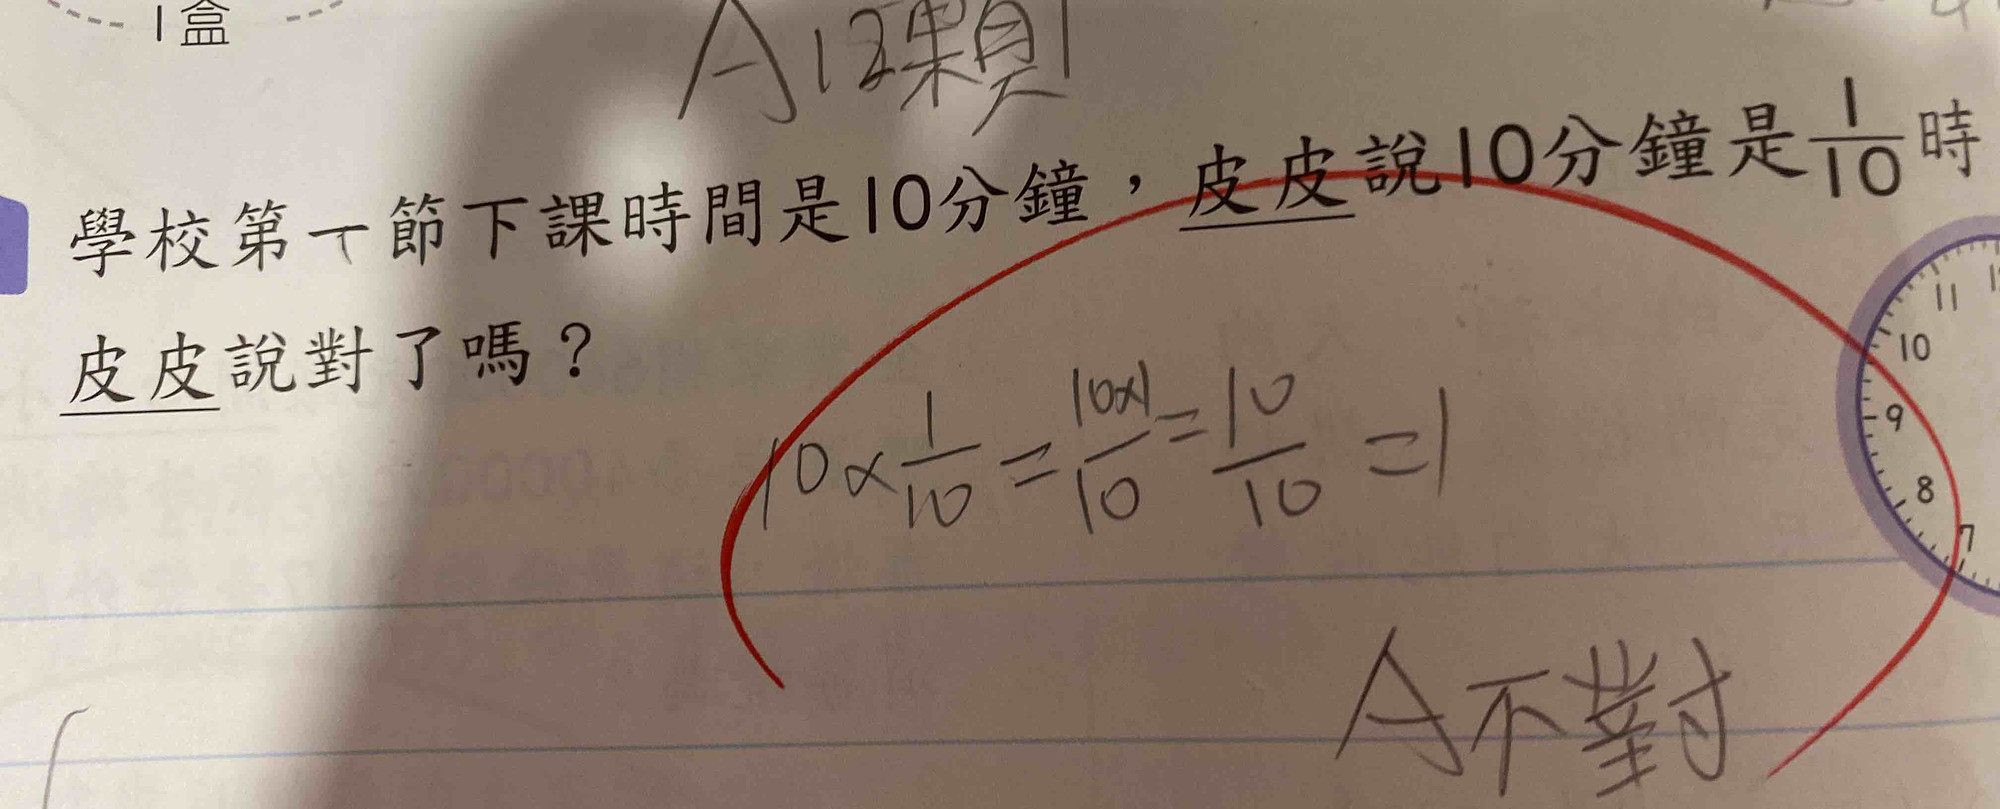 1盒
A12顆
學校第一節下課時間是10分鐘，皮皮說10分鐘是1/10時
皮皮說對了嗎？
10×1/10=10×1/10=10/10=1
11
10
9
8
7
A不對